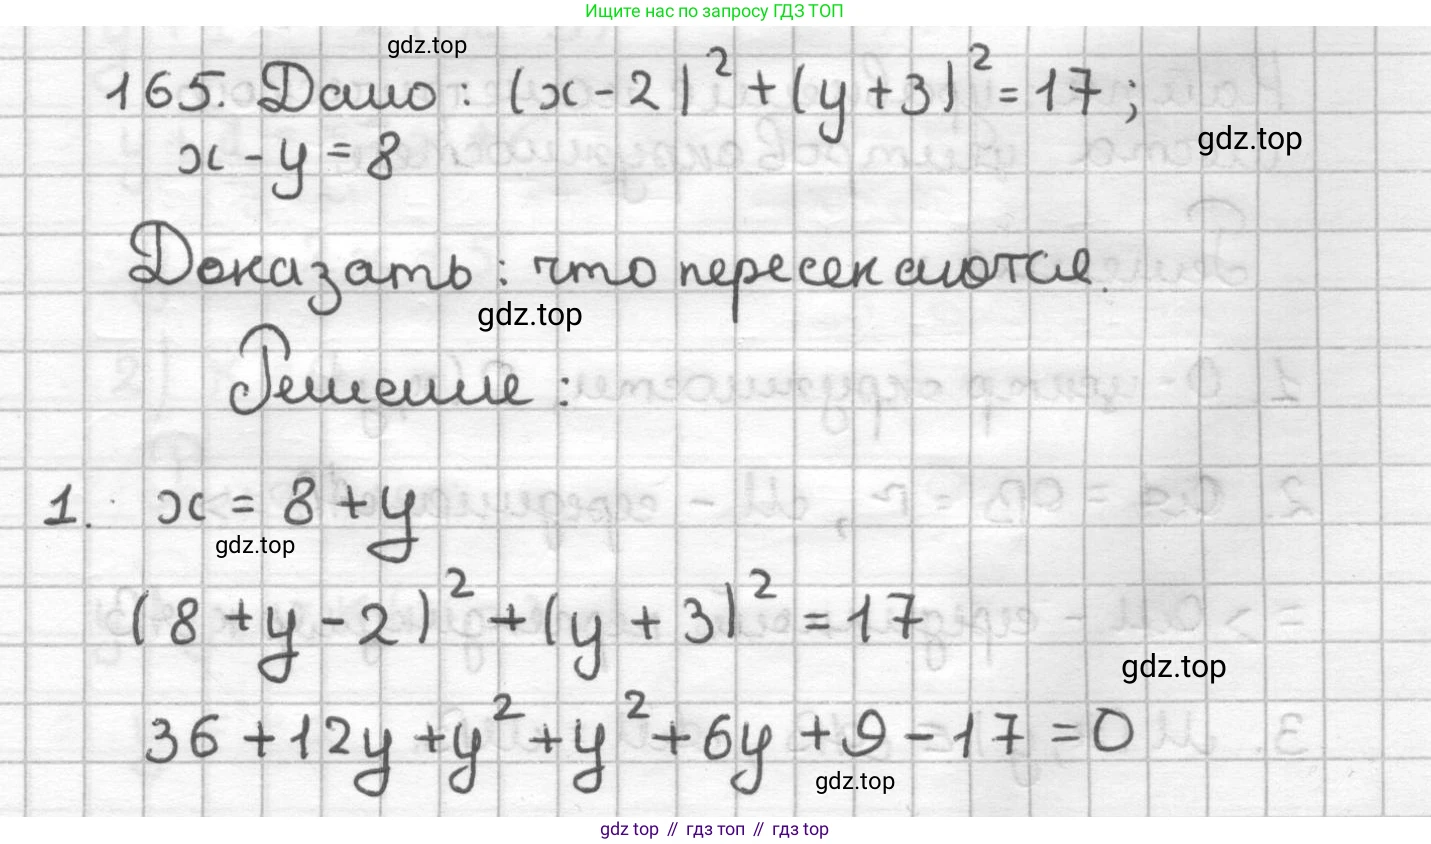 Ищите нас по запросу ГДЗ ТОП
gdz.top
165. Дано: (x-2)²+(y+3)²=17;
gdz.top
x-y=8
Доказать: что пересекаются.
gdz.top
Решение:
1. x=8+y
gdz.top
(8+y-2)²+(y+3)²=17
gdz.top
36+12y+y²+y²+6y+9-17=0
gdz.top
gdz top // гдз топ // gdz.top